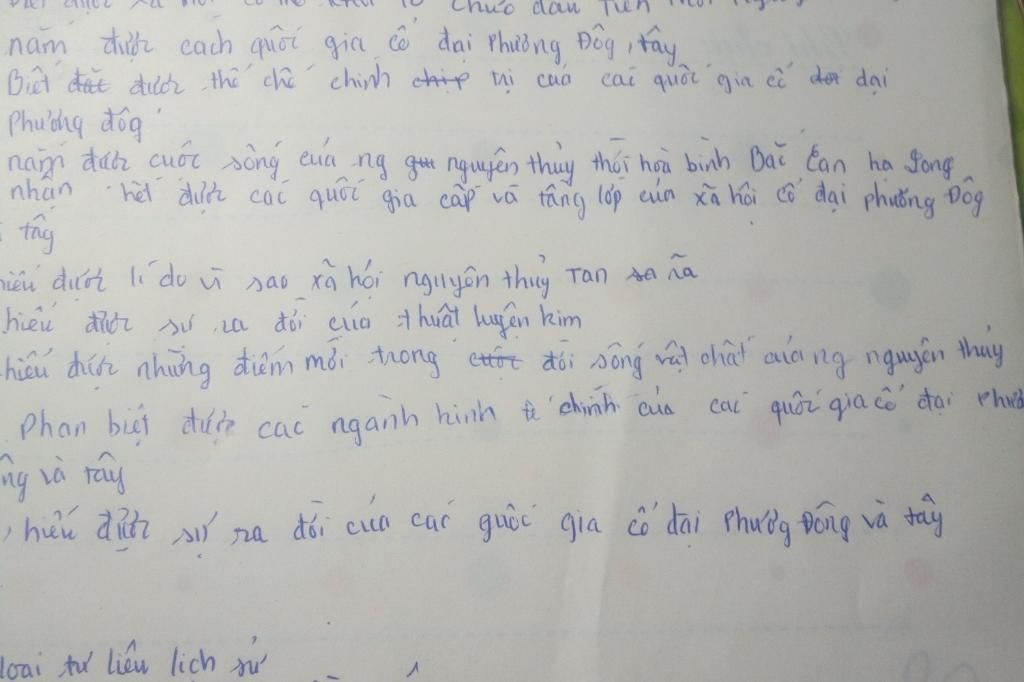 Chức đầu tiên
nắm được cách quốc gia cổ đại Phương Đôg, tây
Biết đắt được thể chế chính chip trị của các quốc gia cổ dai đại
Phương đôg
nắm được cuốc sống của ng nguyên thủy thời hoà bình Bắc San hạ Long
nhận hết được các quốc gia cấp và tầng lớp của xã hội cổ đại phương Đôg
tây
hiểu được lí do vì sao xã hội nguyên thủy Tan sa rã
hiểu được sự ra đời của thuật luyện kim
hiểu được những điểm mới trong cước đời sống vật chất của ng nguyên thủy
Phan biệt được các ngành kinh tế chính của các quốc gia cổ đại Phươ
ng và tây
, hiểu được sự ra đời của các quốc gia cổ đại Phươg Đông và tây
loại tư liệu lịch sử